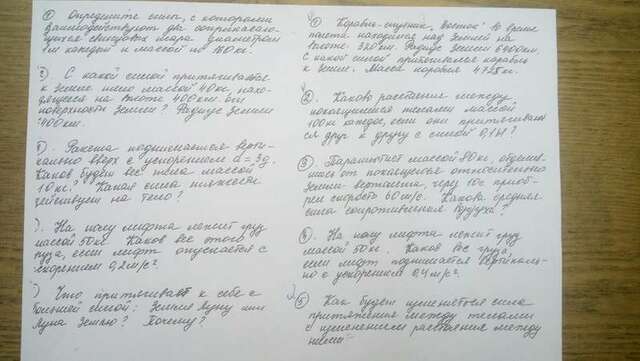 ① Определите силы, с которыми
взаимодействуют два соприкасаю-
щихся свинцовых шара диаметром
1м каждый и массой по
② С какой силой притягивается
к Земле тело массой 40кг, нахо-
дящееся на высоте 400км от
поверхности Земли? Радиус Земли
6400км.
Ракета поднимается верти-
кально вверх с ускорением a = 3g.
Каков будет вес тела массой
10кг? Какая сила тяжести
действует на тело?
На полу лифта лежит груз
массой 50кг. Каков вес этого
груза, если лифт опускается с
ускорением 0,2м/с².
Что притягивает к себе с
большей силой: Земля Луну или
Луна Землю? Почему?
① Корабль-спутник „Восток" во время
полета находился над Землей на
высоте 320км. Радиус Земли 6400км.
С какой силой притягивался корабль
к Земле. Масса корабля 4725кг.
2. Каково расстояние между
покоящимися телами массой
100кг каждое, если они притягивают-
ся друг к другу с силой 0,1Н?
③. Парашютист массой 80кг, отделив-
шись от покоящегося относительно
Земли вертолета, через 10с приоб-
рел скорость 60м/с. Какова средняя
сила сопротивления воздуха?
④. На полу лифта лежит груз
массой 50кг. Каков вес груза,
если лифт поднимается вертикаль-
но с ускорением 0,4м/с².
⑤ Как будет изменяться сила
притяжения между телами
с изменением расстояния между
ними